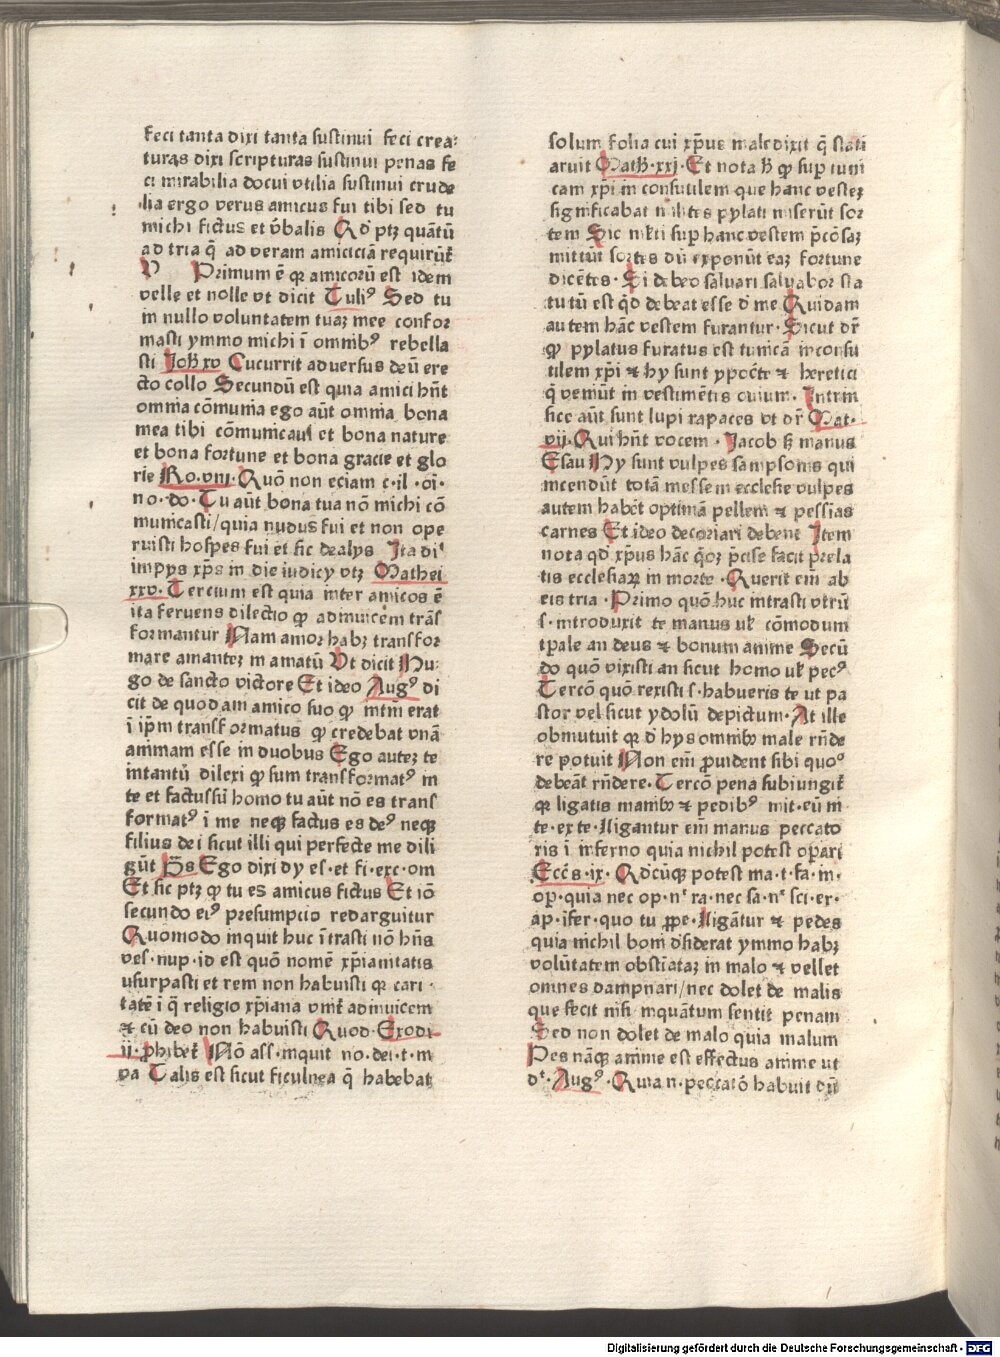 feci tanta dixi tanta sustinui feci crea⸗
turas dixi scripturas sustinui penas fe
ci mirabilia docui vtilia sustinui crude
lia ergo verus amicus fui tibi sed tu
michi fictus et v̄balis Qd̛ ptꝫ quātū
ad tria q̄ ad veram amiciciā requirūt̛
V Primum ē qꝛ amicorū est idem
velle et nolle vt dicit Tuliꝰ Sed tu
in nullo voluntatem tuaꝫ mee confor
masti ymmo michi ī omnibꝰ rebella
sti Joh̄ xv Cucurrit adversus deū ere
cto collo Secundū est quia amici hn̄t
omnia cōmunia ego aūt omnia bona
mea tibi cōmunicaui et bona nature
et bona fortune et bona gracie et glo
rie Ro.viij. Quō non eciam c.il.oi.
no.do. Tu aūt bona tua nō michi cō
municasti/quia nudus fui et non ope
ruisti hospes fui et sic de alys Ita di
impys xp̄s in die iudicy vtꝫ Mathei
xxv. Tercium est quia inter amicos ē
ita feruens dilectio ꝙ adinuicem trās
formantur Nam amor habꝫ transfor
mare amanteꝫ in amatū Vt dicit Hu⸗
go de sancto victore Et ideo Augꝰ di
cit de quodam amico suo ꝙ intm̄ erat
ī ip̄m transformatus ꝙ credebat vnā
animam esse in duobus Ego auteꝫ te
intantū dilexi ꝙ sum transformatꝰ in
te et factus sū homo tu aūt nō es trans
formatꝰ ī me neqꝫ factus es deꝰ neqꝫ
filius dei sicut illi qui perfecte me dili
gūt p̄s Ego dixi dy es.et fi.exc.om
Et sic ptꝫ ꝙ tu es amicus fictus Et iō
secundo eiꝰ presumpcio redarguitur
Quomodo inquit huc ītrasti nō hn̄s
ves.nup.id est quō nomē xp̄ianitatis
vsurpasti et rem non habuisti qꝛ cari.
tatē ī q̄ religio xp̄iana vnit̛ adinuicem
⁊ cū deo non habuisti Quod.Exodi
ij.phibet̛ Nō ass.inquit no.dei.t.in
va Talis est sicut ficulnea q̄ habebat
solum folia cui xp̄us maledixit q̄ stati
aruit Math.xxj.Et nota h̄ ꝙ sup tuni
cam xp̄i in consutilem que hanc vesteꝫ
significabat milites pylati miserūt sor
tem Sic mlti sup hanc vestem p̄cōsaꝫ
mittūt sortes dū exponūt eaꝫ fortune
dicētes. Si debeo saluari saluabor sta
tutū est qd̛ debeat esse d̛ me Quidam
autem hāc vestem furantur. Sicut dr̄
ꝙ pylatus furatus est tunicā inconsu
tilem xp̄i ⁊ hy sunt ypoc̄te ⁊ heretici
q̄ veniūt in vestimētis ouium. Intrin
sice aūt sunt lupi rapaces vt dr̄ Mat.
vij. Qui hn̄t vocem. Jacob sꝫ manus
Esau Hy sunt vulpes sampsonis qui
incendūt totā messem ecclesie vulpes
autem habēt optimā pellem ⁊ pessias
carnes Et ideo decoriari debent Item
nota qd̛ xp̄us hāc q̄oꝫ p̄cise facit prela
tis ecclesiaꝝ in morte. Querit em̄ ab
eis tria. Primo quō huc intrasti vtrū
s.introduxit te manus vl̛ cōmodum
tp̄ale an deus ⁊ bonum anime Secū
do quō vixisti an sicut homo vl̛ pecꝰ
Tercō quō rexisti s.habueris te ut pa
stor vel sicut ydolū depictum. At ille
obmutuit qꝛ d̛ hys omnibꝰ male rn̄de
re potuit Non em̄ ꝓuident sibi quoº
debeāt rn̄dere. Tercō pena subiungit̛
qꝛ ligatis manibꝰ ⁊ pedibꝰ mit.eū in
te.exte.Iligantur em̄ manus peccato
ris ī inferno quia nichil potest op̄ari
Ecc̄s.ix. Qd̛cūqꝫ potest ma.t.fa.in.
op.quia nec op.nͨ ra.nec sa.nͨ sci.er.
ap.ifer.quo tu ꝓpe.Iligātur ⁊ pedes
quia nichil boni d̛siderat ymmo habꝫ
volūtatem obstinataꝫ in malo ⁊ vellet
omnes dampnari/nec dolet de malis
que fecit nisi inquātum sentit penam
Sed non dolet de malo quia malum
Pes nāqꝫ anime est effectus anime ut
dͭ.Augꝰ.Quia n.peccatō habuit dū
Digitalisierung gefördert durch die Deutsche Forschungsgemeinschaft - DFG